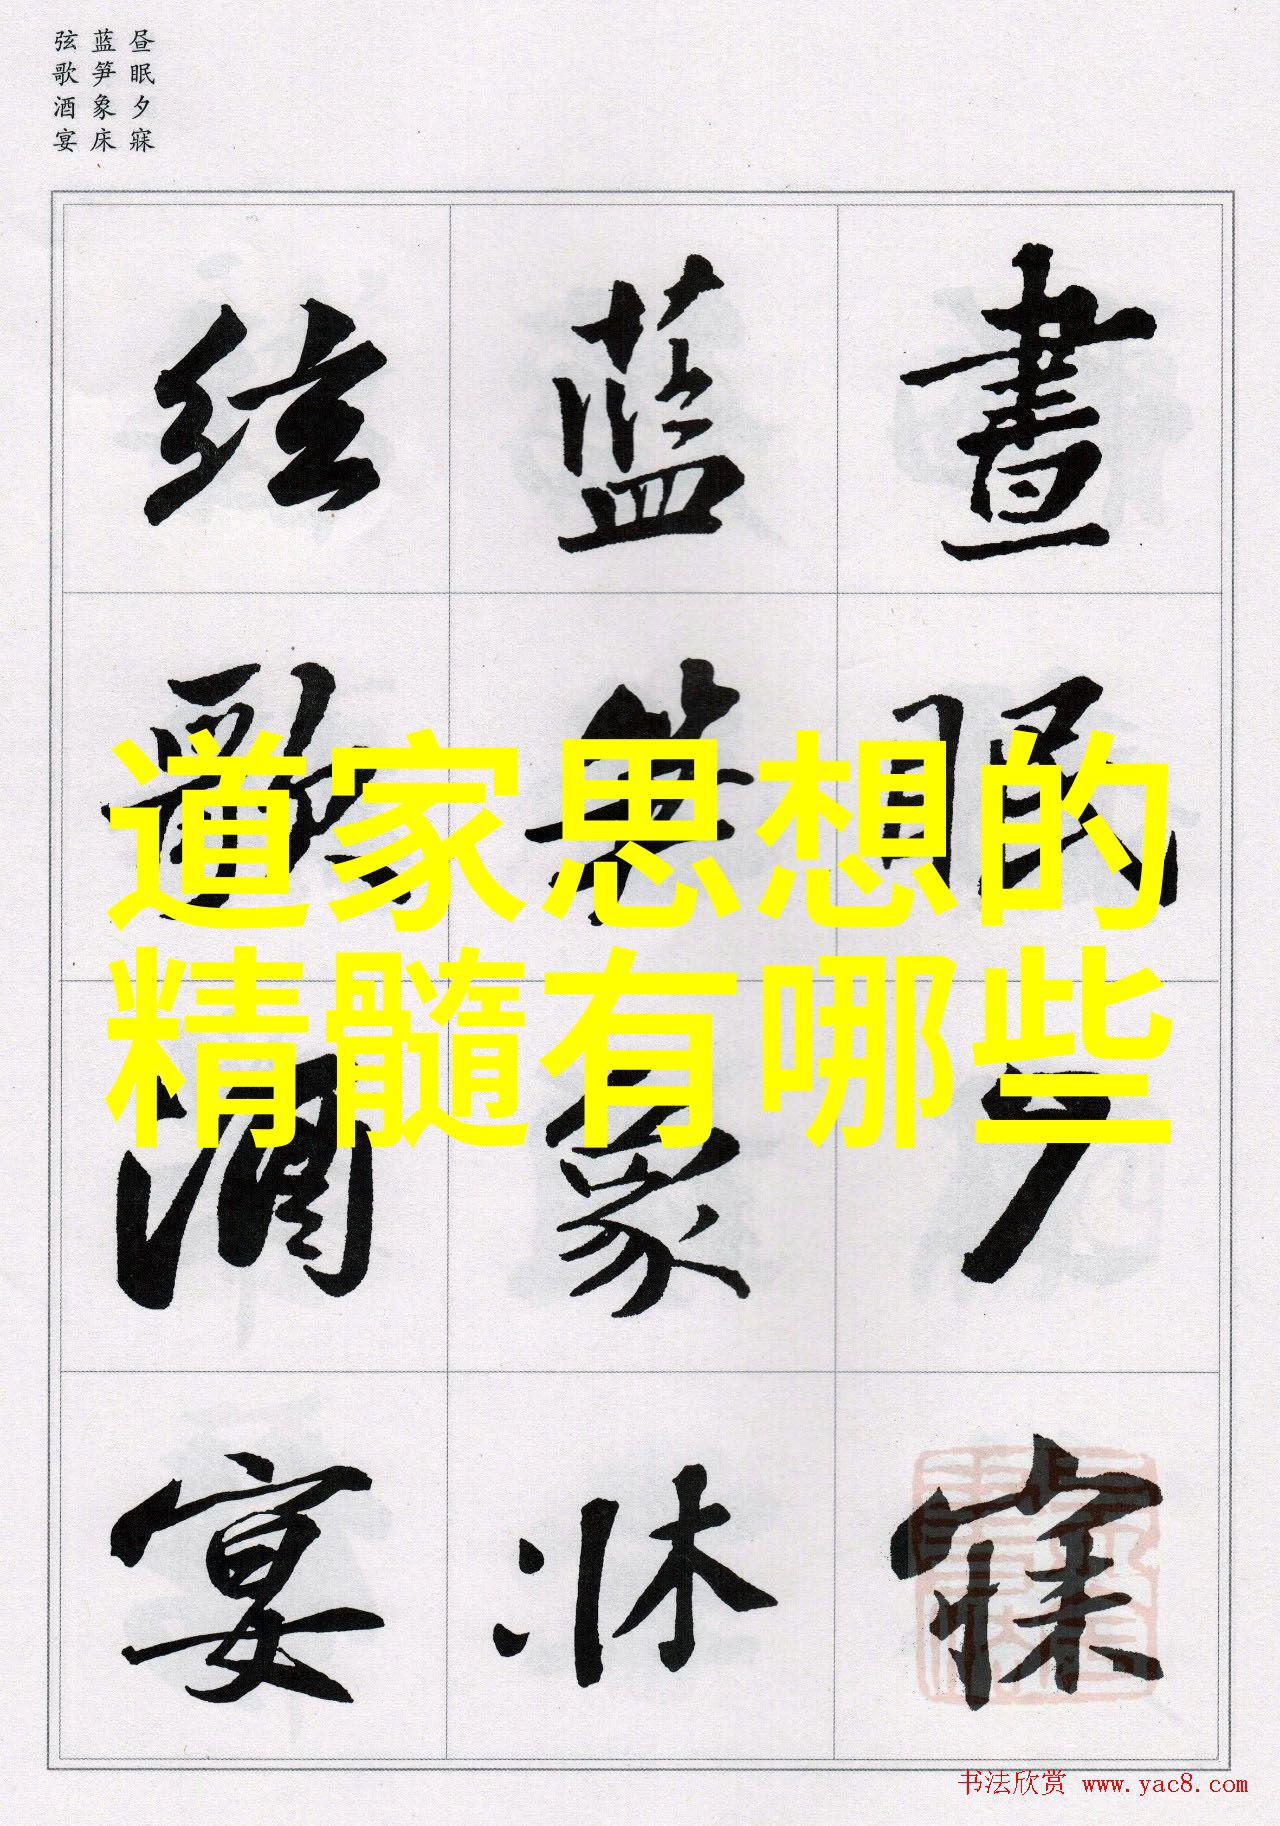 昼眠夕寐
蓝笋象床
弦歌酒宴
晝眠夕寐
蓝笋象床
弦歌酒宴
道家思想的
精髓有哪些
书法欣赏 www.yac8.com